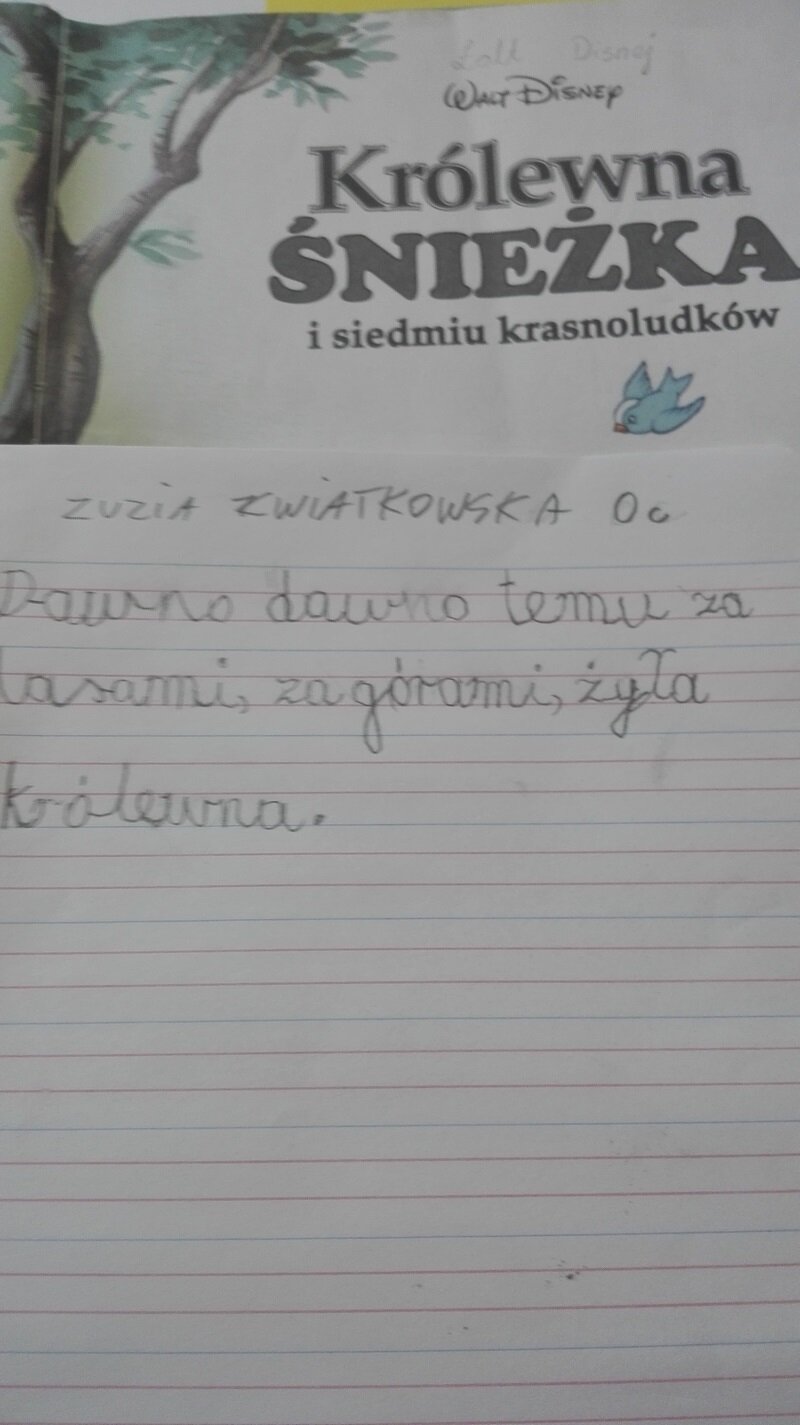 Disnej
WALT DISNEY
Królewna
ŚNIEŻKA
i siedmiu krasnoludków
ZUZIA KWIATKOWSKA 0c
Dawno dawno temu za
lasami, za górami, żyła
królewna.